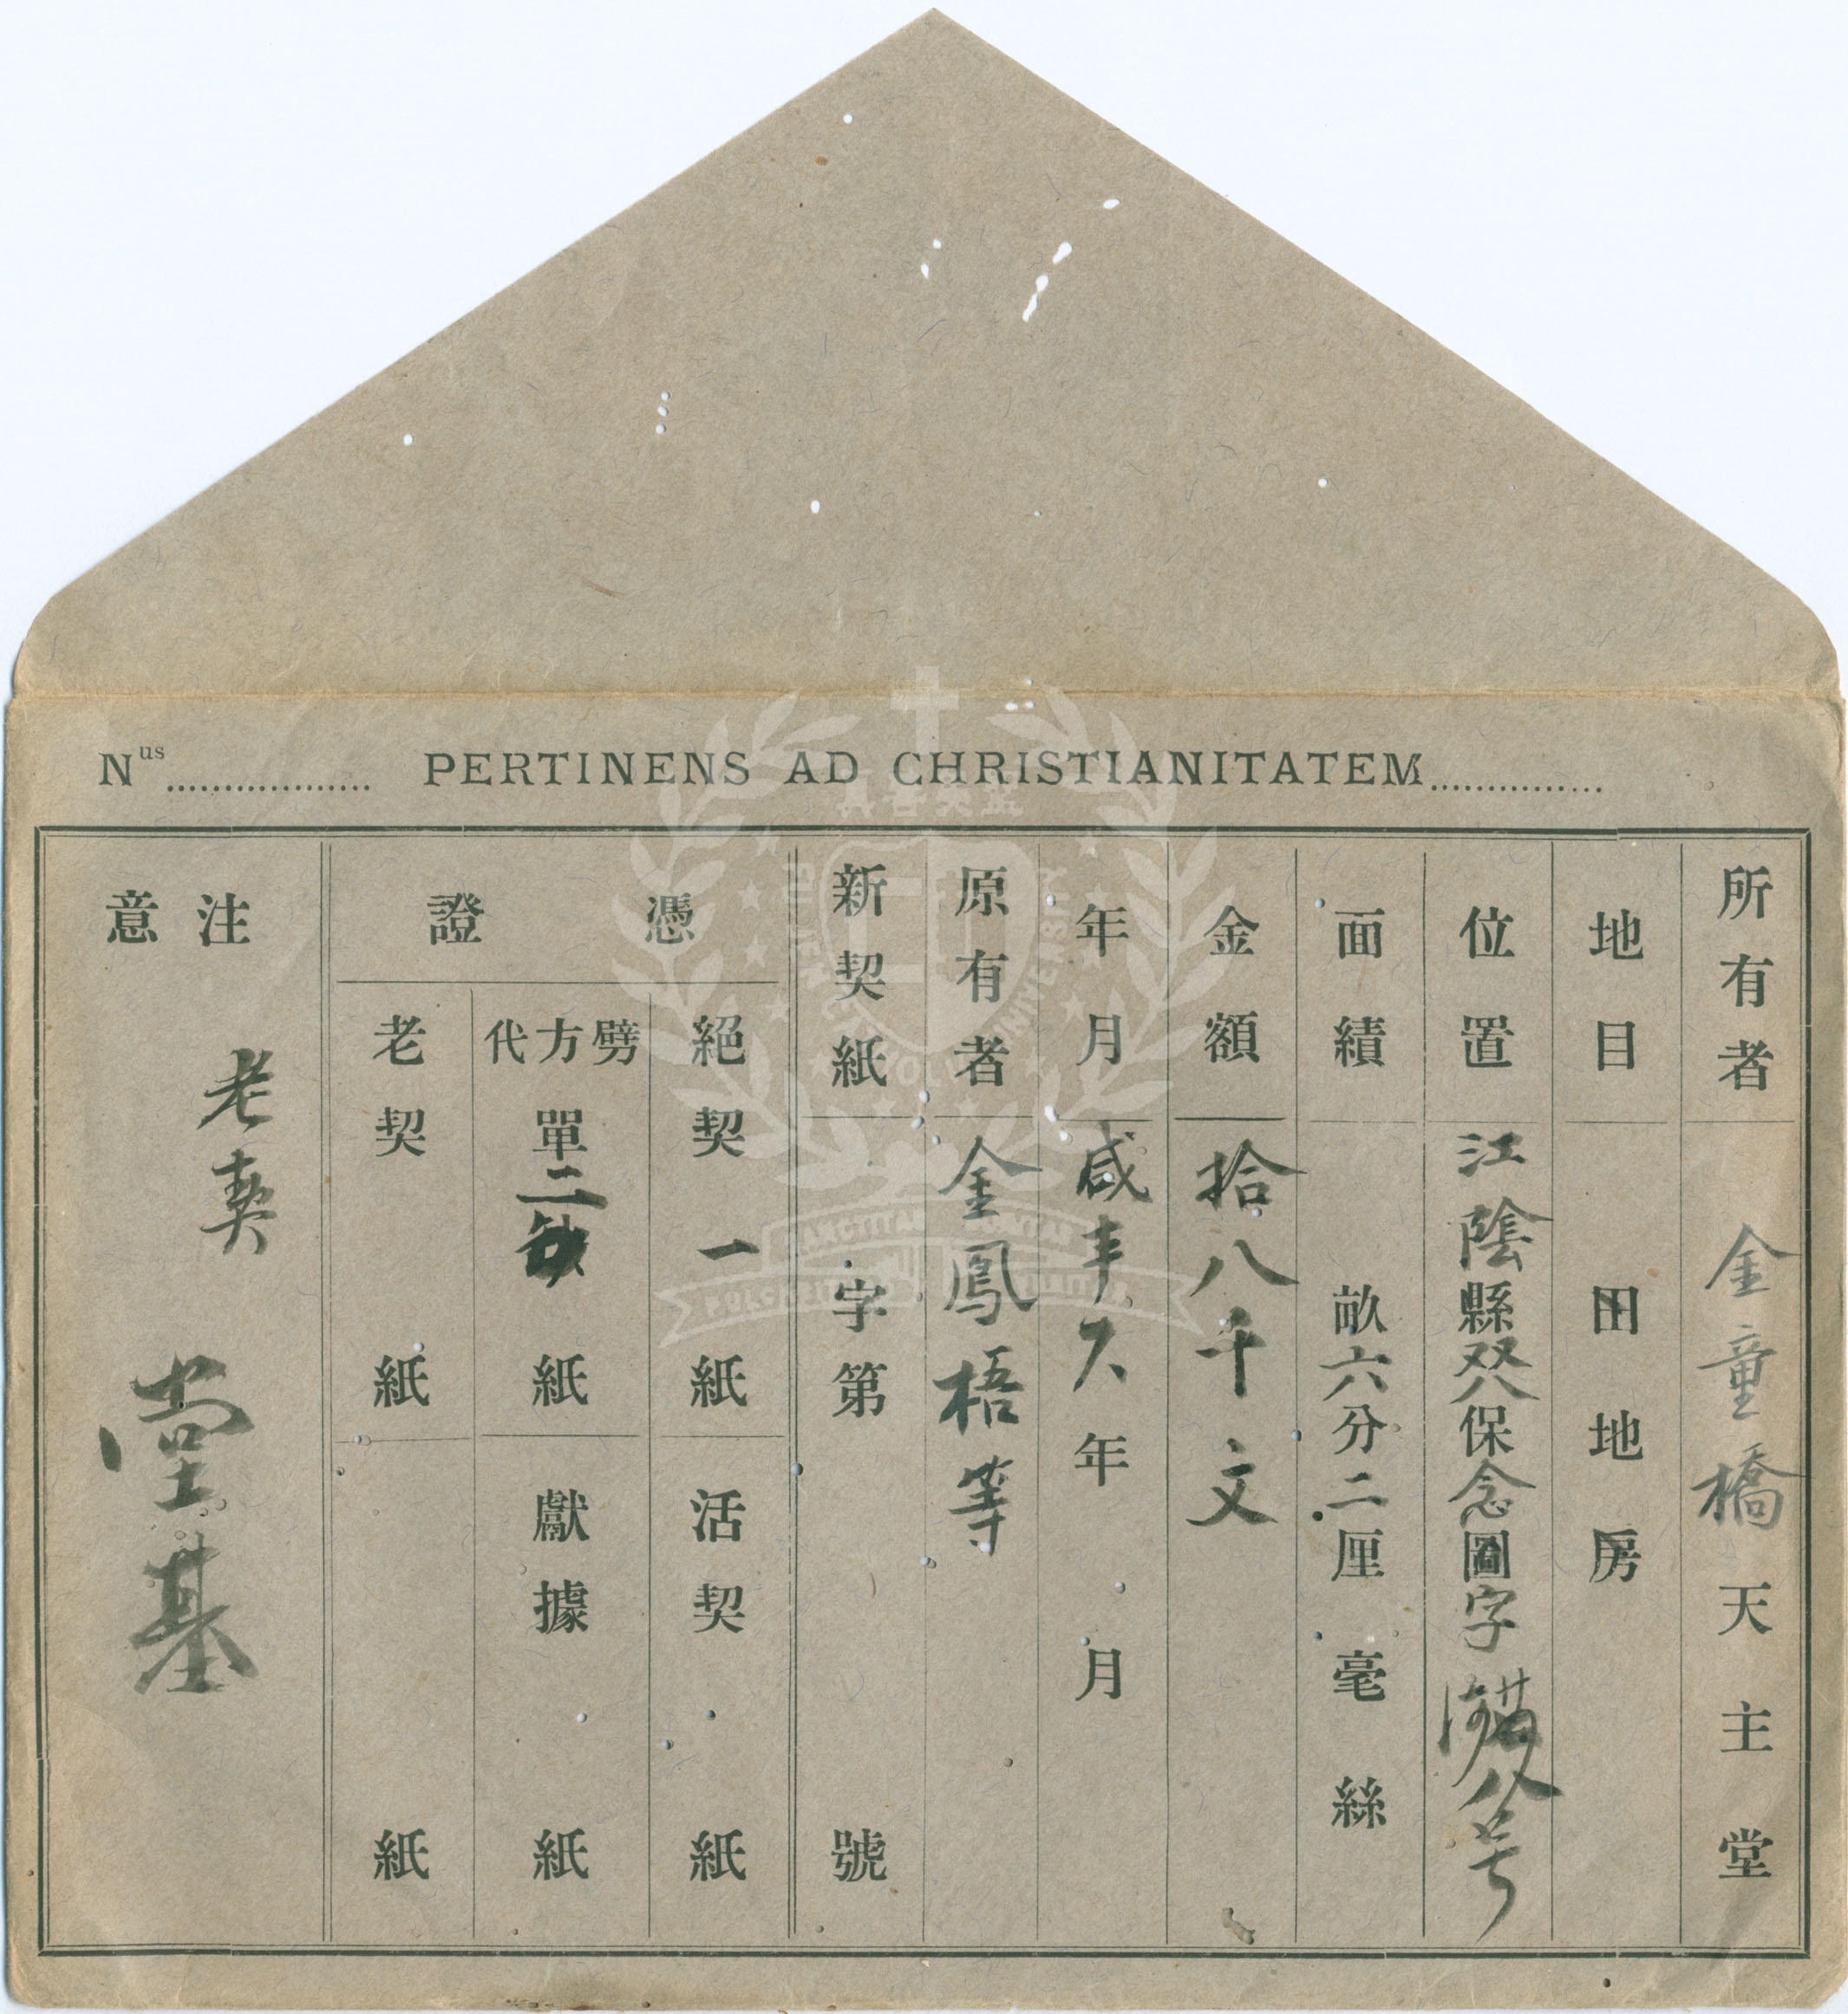 Nus.................. PERTINENS AD CHRISTIANITATEM...............
所有者 金童橋天主堂
地目 田地房
位置 江陰縣双八保念圖字八号
面績 畝六分二厘毫絲
金額 拾八千文
年月 咸丰久年月
原有者 金鳳梧等
新契紙 字第號
憑證
絕契一紙 活契紙
劈方代單二紙 獻據紙
老契紙 紙
注意
老契
堂基